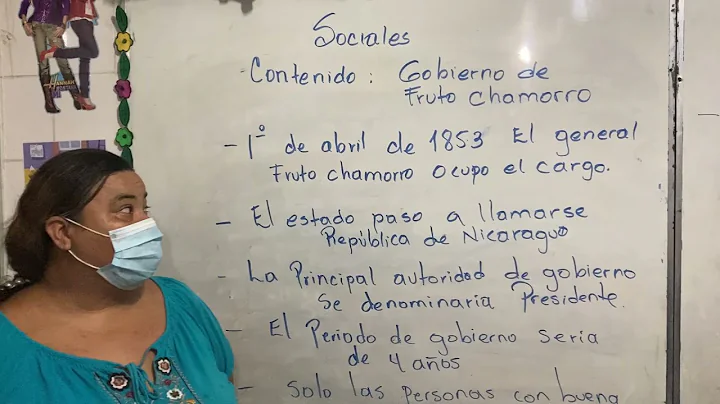 Sociales
- Contenido : Gobierno de
Fruto Chamorro
- 1° de abril de 1853 El general
Fruto chamorro ocupo el cargo.
- El estado paso a llamarse
República de Nicaragua
- La Principal autoridad de gobierno
se denominaria Presidente.
- El Periodo de gobierno seria
de 4 años
- Solo las personas con buena
HANNAH
MONTANA